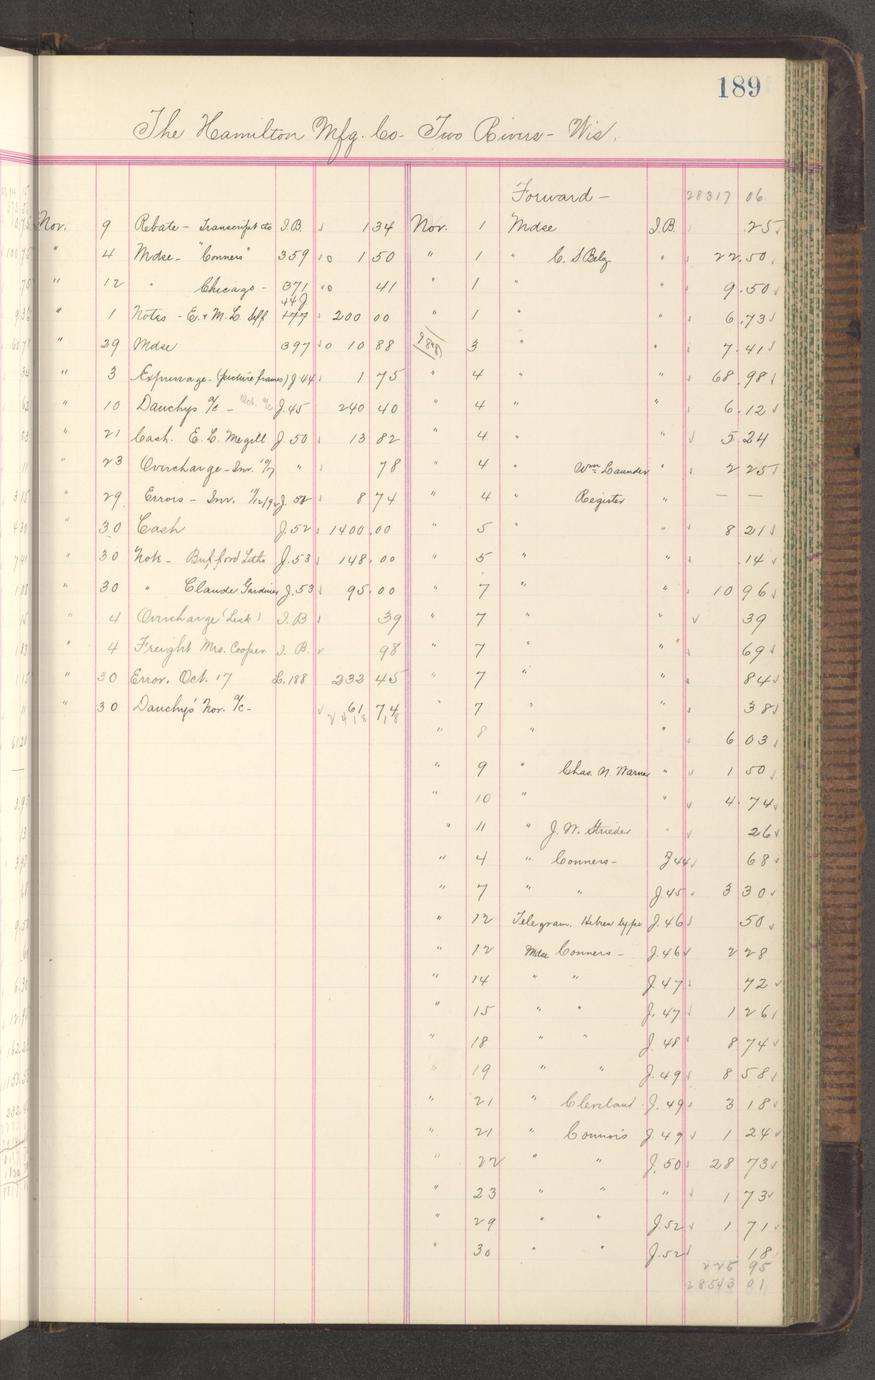 189
The Hamilton Mfg. Co- Two Rivers- Wis.
Nov. 9 Rebate - Transcript cts I.B. 1 34
" 4 Mdse- "Conners" 359 1 50
" 12 " Chicago- 371 41
449
" 1 Notes - E. & M. L. 477 200 00
" 29 Mdse 397 10 88
" 3 Expressage- (picture frames) J.44 1 75
" 10 Dauchys a/c - Oct. a/c J.45 240 40
" 21 Cash. E. L. Megill J.50 13 82
" 23 Overcharge-Inv. " 78
" 29 Errors- Inv. J.52 8 74
" 30 Cash J.52 1400.00
" 30 Note- Bufford Litho J.53 148.00
" 30 " Claude Gardiner J.53 95.00
" 4 Overcharge (Lisk) I.B 39
" 4 Freight Mrs. Cooper I.B. 98
" 30 Error. Oct. 17 L.188 232 45
" 30 Dauchys' Nov. a/c- 61 74
Forward- 28317 06
Nov. 1 Mdse I.B. .25
" 1 " C. S Belg " 22.50
" 1 " " 9.50
" 1 " " 6.73
1898 3 " " 7.41
" 4 " " 68.98
" 4 " " 6.12
" 4 " " 5.24
" 4 " Wm. Launder " 2 25
" 4 " Register " — —
" 5 " " 8 21
" 5 " " .14
" 7 " " 10 96
" 7 " " 39
" 7 " " 69
" 7 " " 84
" 7 " " 38
" 8 " " 6 03
" 9 " Chas. N. Warner " 1 50
" 10 " " 4.74
" 11 " J. W. Strieder " 26
" 4 " Conners- J.44 68
" 7 " " J.45 3 30
" 12 Telegram. Hebrew type J.46 50
" 12 Mdse Conners- J.46 2 28
" 14 " " J.47 72
" 15 " " J.47 1 26
" 18 " " J.48 8 74
" 19 " " J.49 8 58
" 21 " Cleveland. J.49 3 18
" 21 " Connors J.49 1 24
" 22 " " J.50 28 73
" 23 " " " 1 73
" 29 " " J.52 1 71
" 30 " " J.52 18
225 95
28543 01